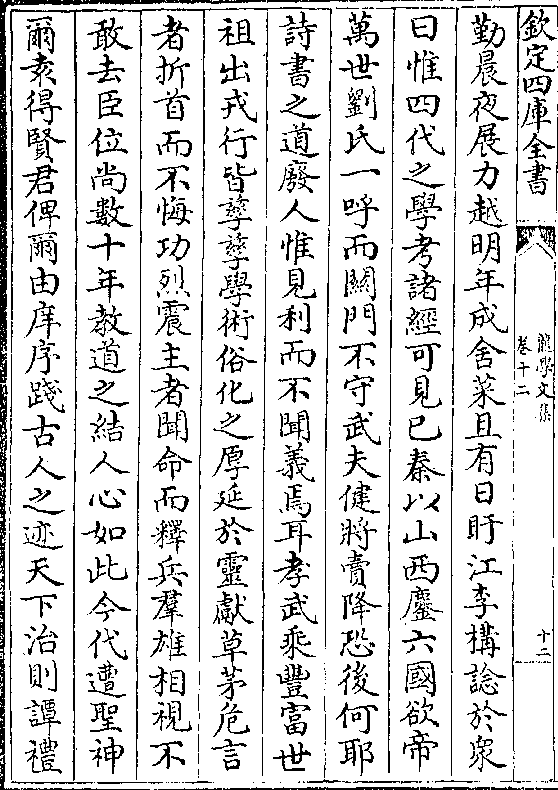 欽定四庫全書
龍學文集
卷十二
十二
勤晨夜展力越明年成舍菜且有日盱江李構諗於衆
曰惟四代之學考諸經可見已秦以山西鏖六國欲帝
萬世劉氏一呼而關門不守武夫健將賣降恐後何耶
詩書之道廢人惟見利而不聞義焉耳孝武乘豐富世
祖出戎行皆孳孳學術俗化之厚延於靈獻草茅危言
者折首而不悔功烈震主者聞命而釋兵羣雄相視不
敢去臣位尚數十年教道之結人心如此今代遭聖神
爾袁得賢君俾爾由庠序踐古人之迹天下治則譚禮